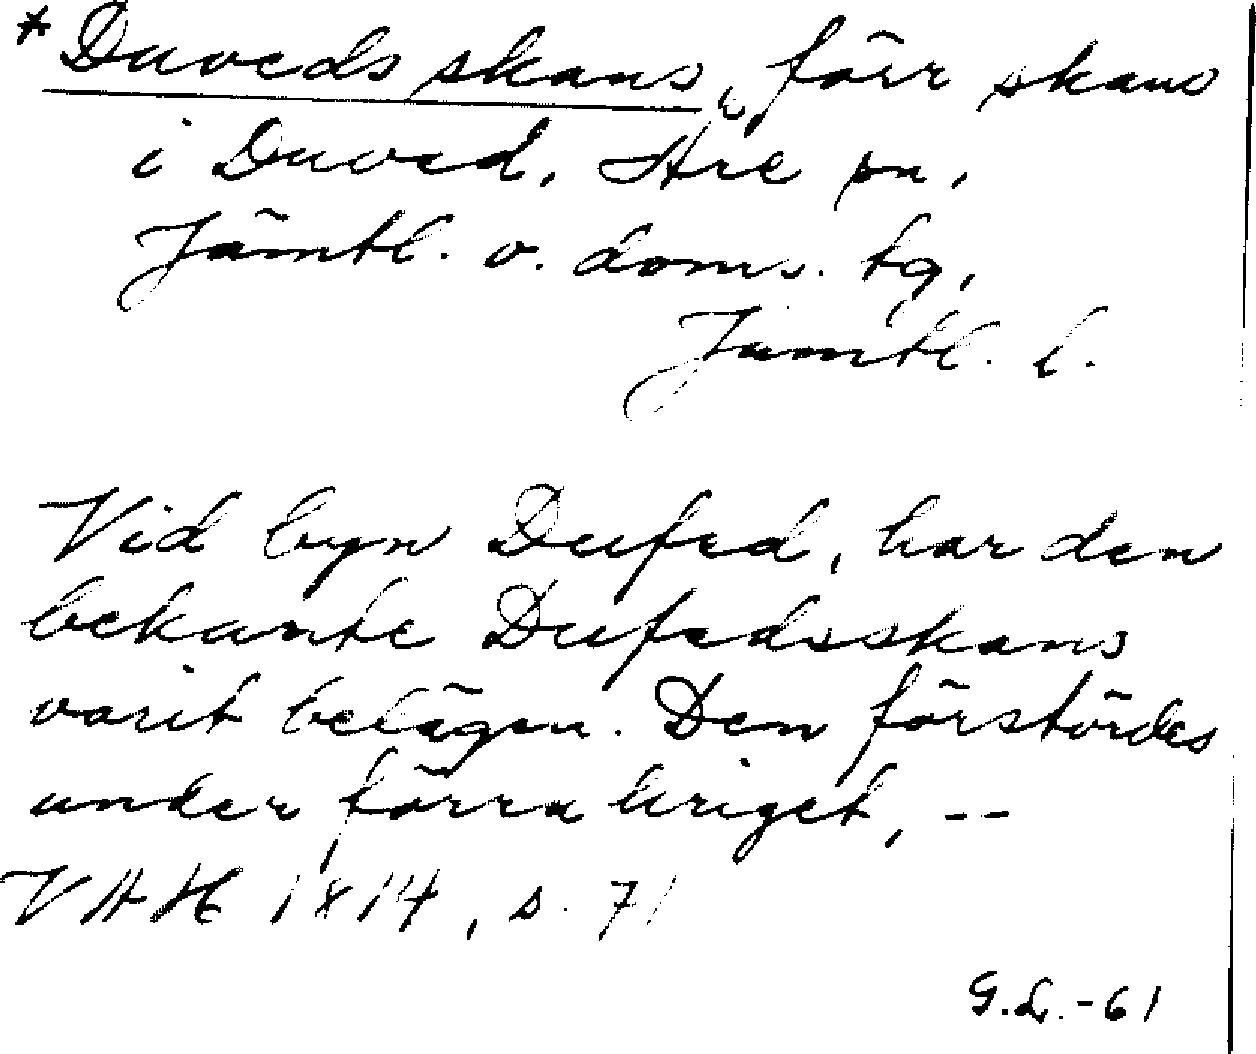 *Duveds skans, förr skans
i Duved, Åre sn,
Jämtl. v. doms. tg,
Jämtl. l.
Vid byn Dufed, har den
bekante Dufedsskans
varit belägen. Den förstördes
under förra kriget, --
VAH 1814, s. 71
G.L.-61